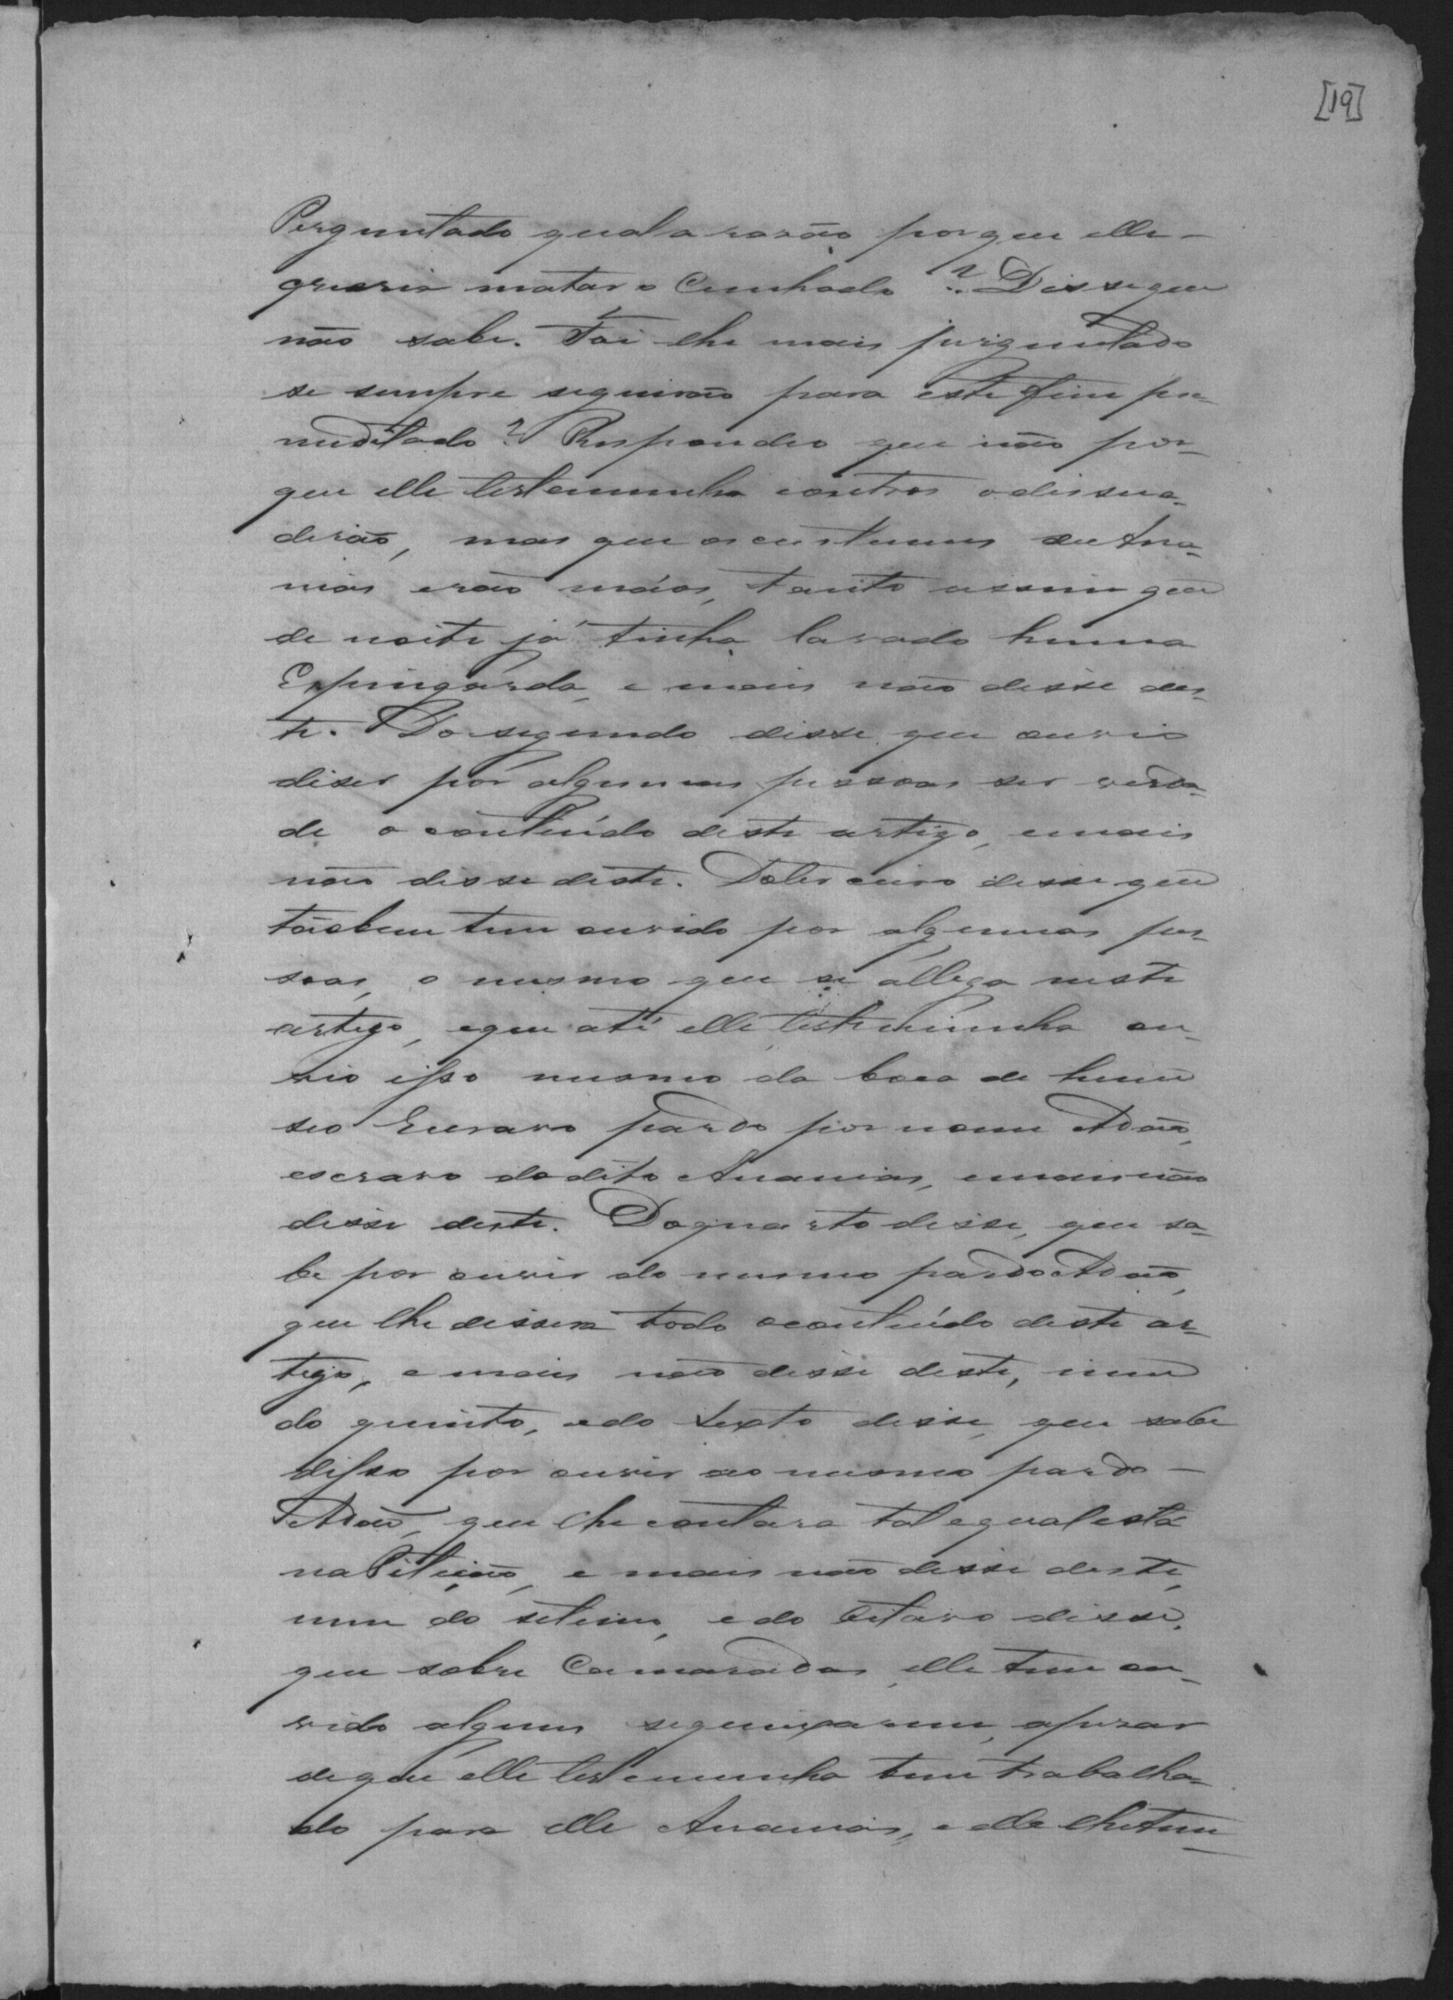 [19]
Perguntado qual a rasão porque elle –
queria matar o Cunhado? Disse que
não sabe. Foi lhe mais perguntado
se sempre seguirão para este fim pre-
meditado? Respondeo que não por-
que elle testemunha e outros o dissua-
dirão, mas que os custumes de Ana-
nias erão máos, tanto assim que
de noite já tinha lavado huma
Espingarda, e mais não disse des-
te. Do segundo disse que ouvio
diser por algumas pessoas ser verda-
de o contiúdo deste artigo, e mais
não disse deste. Do terceiro disse que
tãobem tem ouvido por algumas pes-
soas, o mesmo que se allega neste
artigo, e que até elle testemunha ou-
vio isso mesmo da boca de hum
seo Escravo pardo por nome Adão,
escravo do dito Ananias, e mais não
disse deste. Do quarto disse, que sa-
be por ouvir do mesmo pardo Adão,
que lhe dissera todo o contiúdo deste ar-
tigo, e mais não disse deste, nem
do quinto, e do sexto disse, que sabe
disso por ouvir ao mesmo pardo –
Adão, que lhe contara tal e qual está
na Petição, e mais não disse deste,
nem do setimo, e do Oitavo disse,
que sobre Camaradas elle tem ou-
vido alguns se queixarem, apezar
de que elle testemunha tem trabalha-
do para elle Ananias, e elle lhe tem